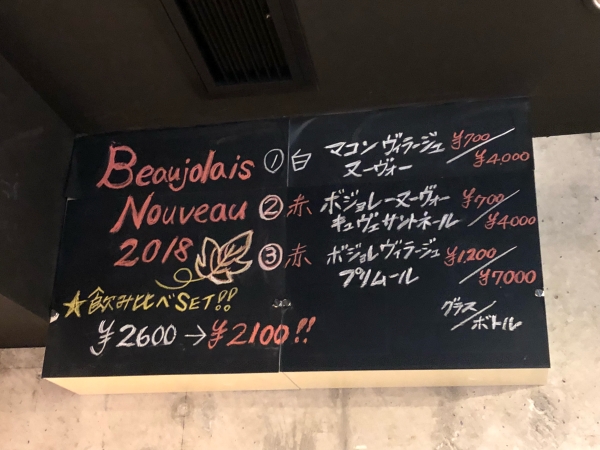 Beaujolais
Nouveau
2018
★飲み比べSET!!
¥2600→¥2100!!
①白 マコン ヴィラージュ ヌーヴォー ¥700/¥4000
②赤 ボジョレーヌーヴォー キュヴェサントネール ¥700/¥4000
③赤 ボジョレヴィラージュ プリムール ¥1200/¥7000
グラス/ボトル